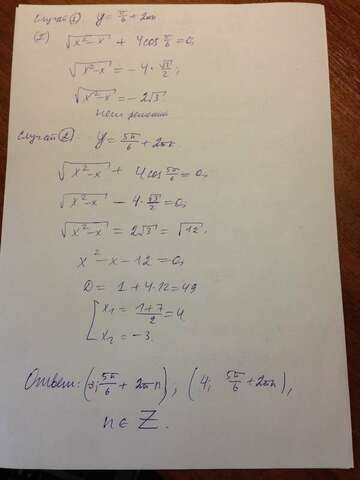 Случай ① y = π/6 + 2πn
(I) √(x²-x) + 4cos π/6 = 0;
√(x²-x) = -4 · √3/2;
√(x²-x) = -2√3.
нет решения
Случай ② y = 5π/6 + 2πn.
√(x²-x) + 4cos 5π/6 = 0;
√(x²-x) - 4 · √3/2 = 0;
√(x²-x) = 2√3 = √12;
x² - x - 12 = 0;
D = 1 + 4·12 = 49
[ x₁ = (1+7)/2 = 4
x₂ = -3.
Ответ: (-3; 5π/6 + 2πn), (4; 5π/6 + 2πn),
n ∈ Z.